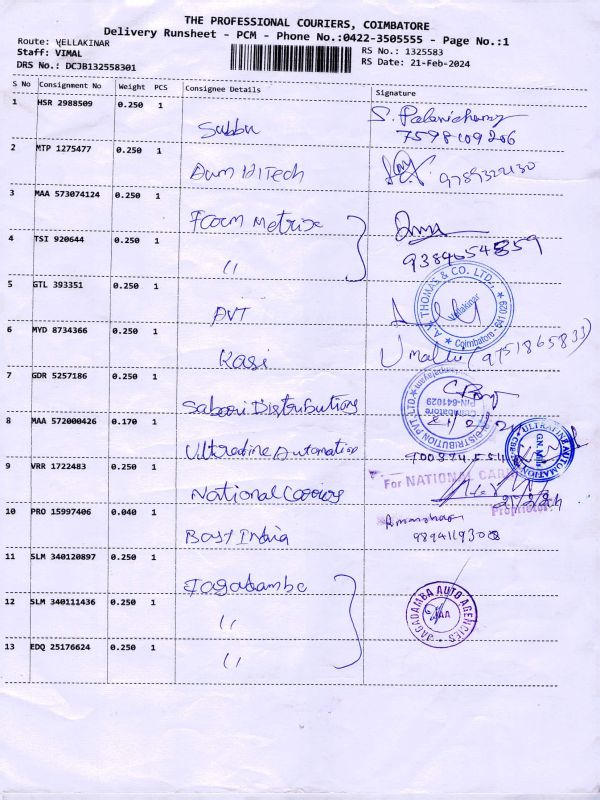 THE PROFESSIONAL COURIERS, COIMBATORE
Delivery Runsheet - PCM - Phone No.:0422-3505555 - Page No.:1
Route: VELLAKINAR
Staff: VIMAL
RS No.: 1325583
DRS No.: DCJB132558301
RS Date: 21-Feb-2024
S No Consignment No Weight PCS Consignee Details Signature
1 HSR 2988509 0.250 1
Subbu S. Palanichamy
7598109206
2 MTP 1275477 0.250 1
Aum HiTech 9789322130
3 MAA 573074124 0.250 1
Form Metrix
4 TSI 920644 0.250 1
" 9384654359
5 GTL 393351 0.250 1
AVT
A.V. THOMAS & CO. LTD.,
Vellakinar
Coimbatore - 641 029
6 MYD 8734366 0.250 1
Kasi Umalu (9751865833)
7 GDR 5257186 0.250 1
Saboori Distributions
DISTRIBUTION PVT. LTD.
Coimbatore
PIN-641029
8 MAA 572000426 0.170 1
Ultradine Automation
ULTRALINE AUTOMATION
G.N. Mills
9 VRR 1722483 0.250 1
National Carriers
For NATIONAL
21/2/24
Proprietor
10 PRO 15997406 0.040 1
Bast India
Rmanohar
98941193008
11 SLM 340120897 0.250 1
Jagadamba
12 SLM 340111436 0.250 1
"
JAGADAMBA AUTO AGENCIES
JAA
13 EDQ 25176624 0.250 1
"